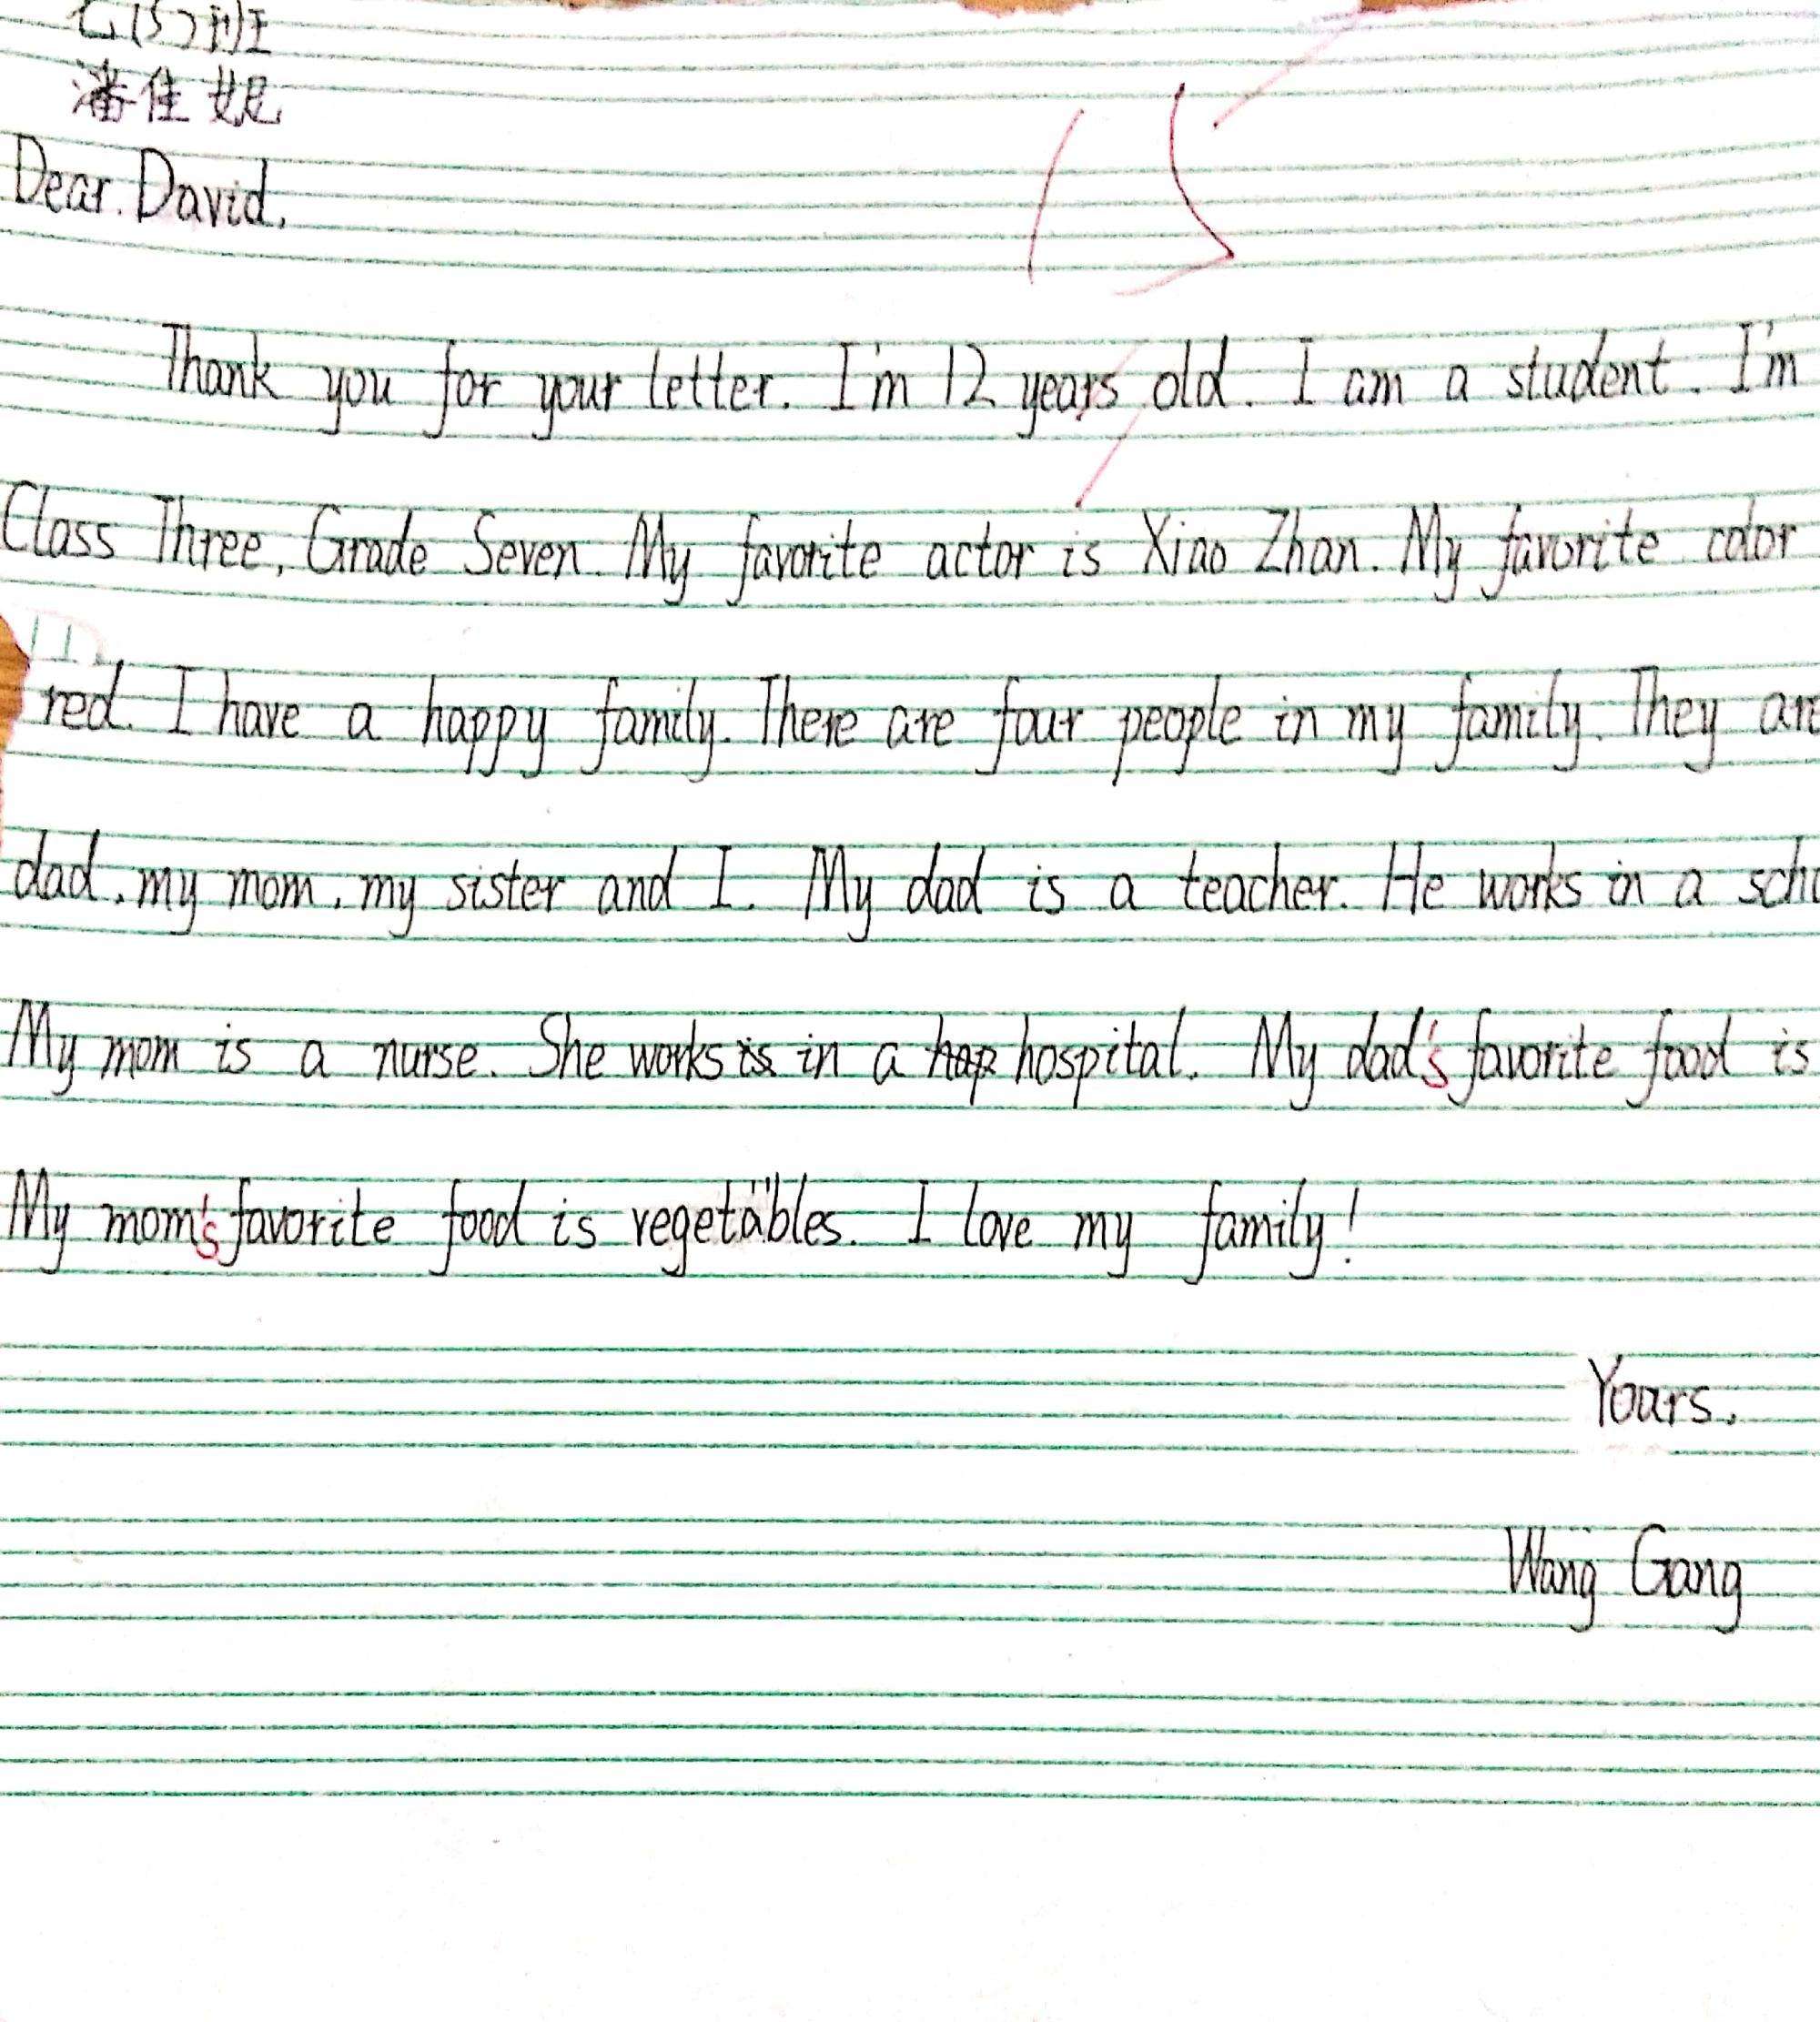 七(5)班
潘佳妮
Dear. David,
15
Thank you for your letter. I'm 12 years old. I am a student. I'm
Class Three, Grade Seven. My favorite actor is Xiao Zhan. My favorite color
red. I have a happy family. There are four people in my family. They are
dad, my mom, my sister and I. My dad is a teacher. He works in a scho
My mom is a nurse. She works in a hospital. My dad's favorite food is
My mom's favorite food is vegetables. I love my family!
Yours,
Wang Gang